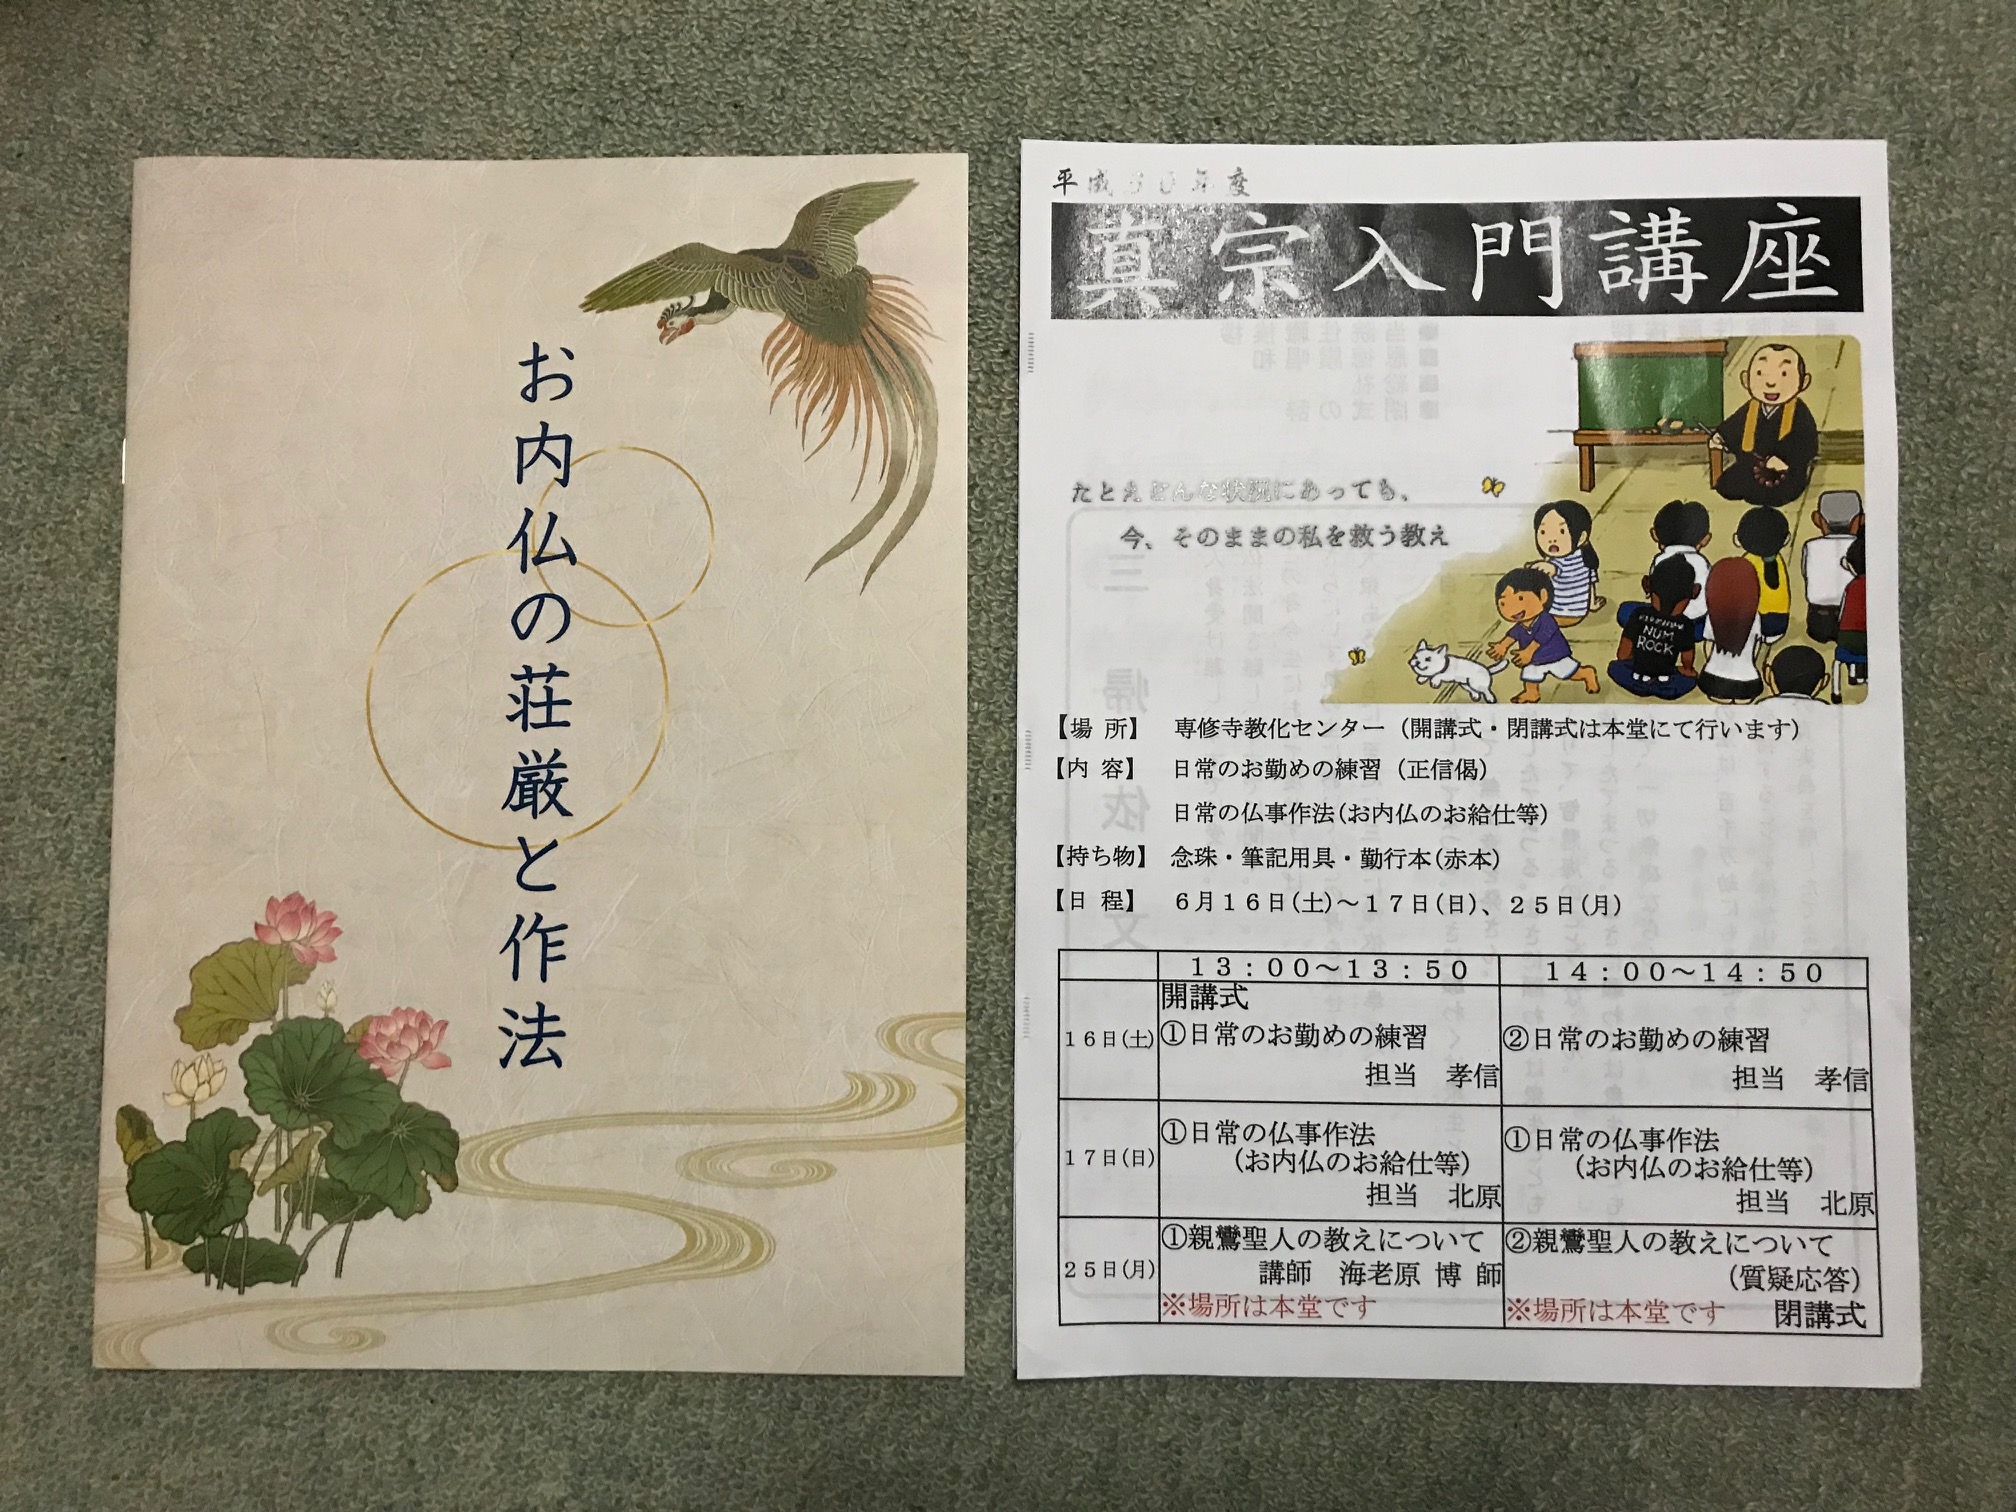 お内仏の荘厳と作法
平成30年度
真宗入門講座
たとえどんな状況にあっても、
今、そのままの私を救う教え
NUM
ROCK
【場 所】 専修寺教化センター（開講式・閉講式は本堂にて行います）
【内 容】 日常のお勤めの練習（正信偈）
日常の仏事作法(お内仏のお給仕等)
【持ち物】 念珠・筆記用具・勤行本(赤本)
【日 程】 ６月１６日(土)～１７日(日)、２５日(月)
１３：００～１３：５０ １４：００～１４：５０
開講式
１６日(土) ①日常のお勤めの練習 ②日常のお勤めの練習
担当 孝信 担当 孝信
①日常の仏事作法 ①日常の仏事作法
１７日(日) (お内仏のお給仕等) (お内仏のお給仕等)
担当 北原 担当 北原
①親鸞聖人の教えについて ②親鸞聖人の教えについて
２５日(月) 講師 海老原 博 師 (質疑応答)
※場所は本堂です ※場所は本堂です 閉講式